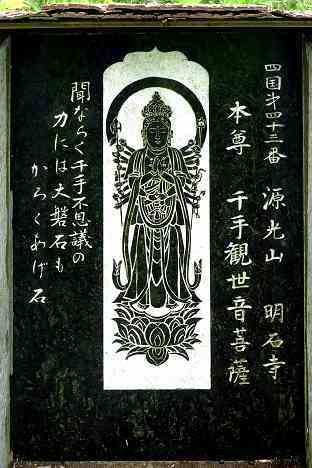 四国第四十三番 源光山 明石寺
本尊 千手観世音菩薩
聞ならく千手不思議の
力には大磐石も
かろくあげ石